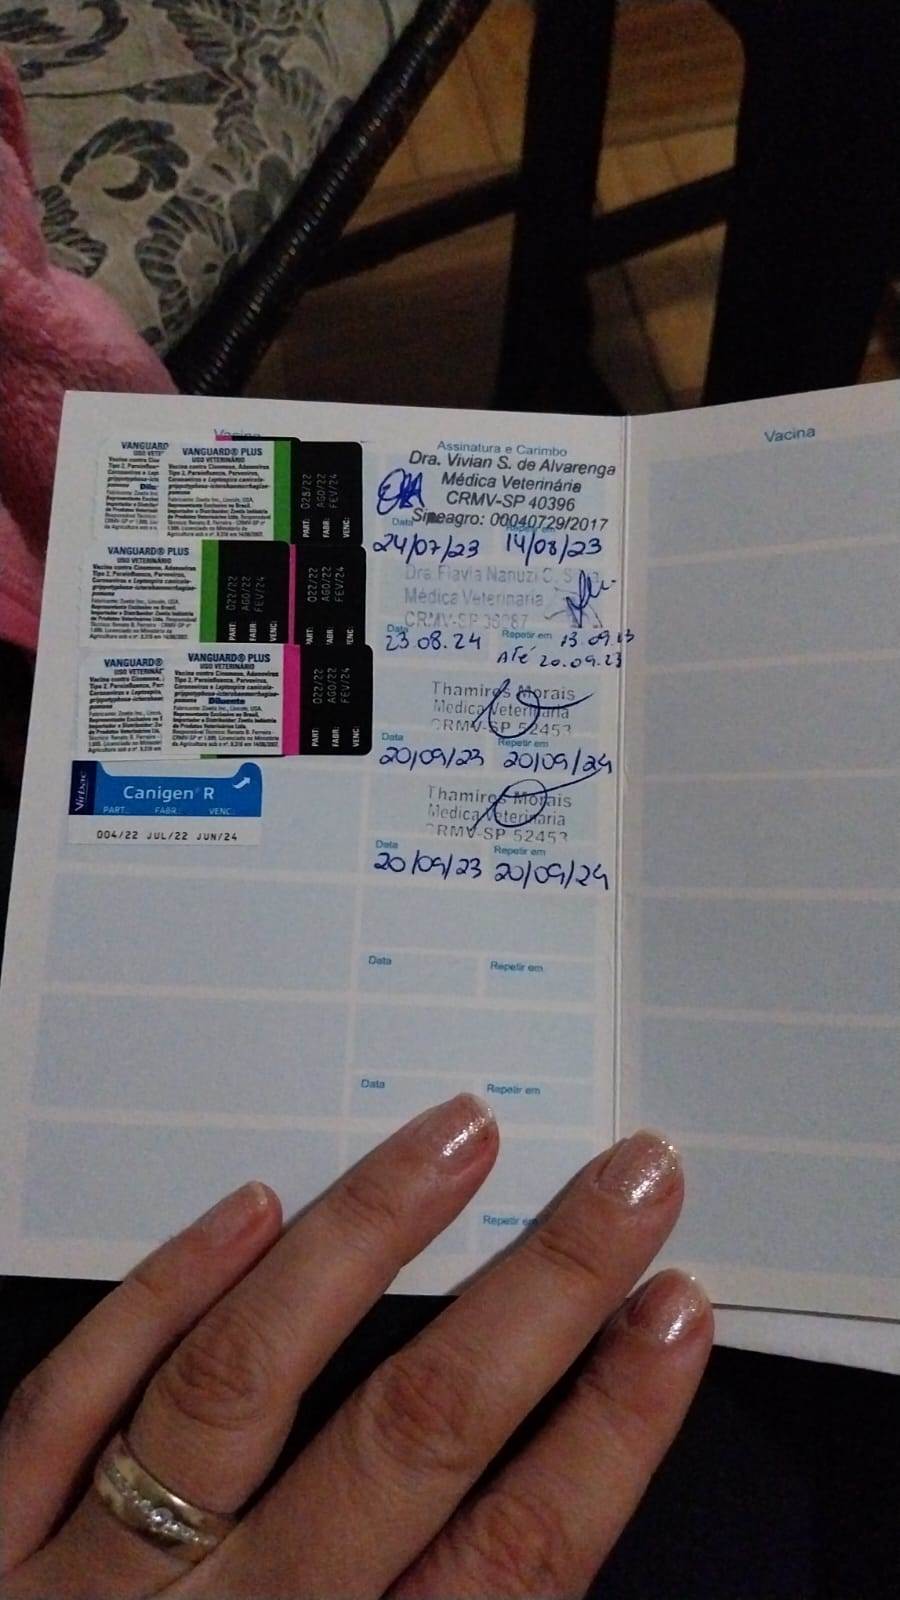 Vacina
VANGUARD
VANGUARD® PLUS
USO VETERINÁRIO
Vacina contra Cinomose, Adenovírus
Tipo 2, Parainfluenza, Parvovírus,
PART: 028/22
FABR: AGO/22
VENC: FEV/24
Assinatura e Carimbo
Dra. Vivian S. de Alvarenga
Médica Veterinária
CRMV-SP 40396
Sipeagro: 00040729/2017
Data Repetir em
24/07/23 14/08/23
VANGUARD® PLUS
USO VETERINÁRIO
Vacina contra Cinomose, Adenovírus
Tipo 2, Parainfluenza, Parvovírus,
PART: 022/22
FABR: AGO/22
VENC: FEV/24
PART: 022/22
FABR: AGO/22
VENC: FEV/24
Dra. Flavia Nanuzi C.
Médica Veterinária
Data
23.08.24
Repetir em 13.09.23
Até 20.09.23
VANGUARD®
USO VETERINÁ
VANGUARD® PLUS
USO VETERINÁRIO
Vacina contra Cinomose, Adenovírus
Tipo 2, Parainfluenza, Parvovírus,
Diluente
PART: 022/22
FABR: AGO/22
VENC: FEV/24
Thamires Morais
Medica Veterinária
CRMV-SP 52453
Data Repetir em
20/09/23 20/09/24
Virbac
Canigen® R
PART: FABR: VENC:
004/22 JUL/22 JUN/24
Thamires Morais
Medica Veterinária
CRMV-SP 52453
Data Repetir em
20/09/23 20/09/24
Data Repetir em
Data Repetir em
Repetir em
Vacina